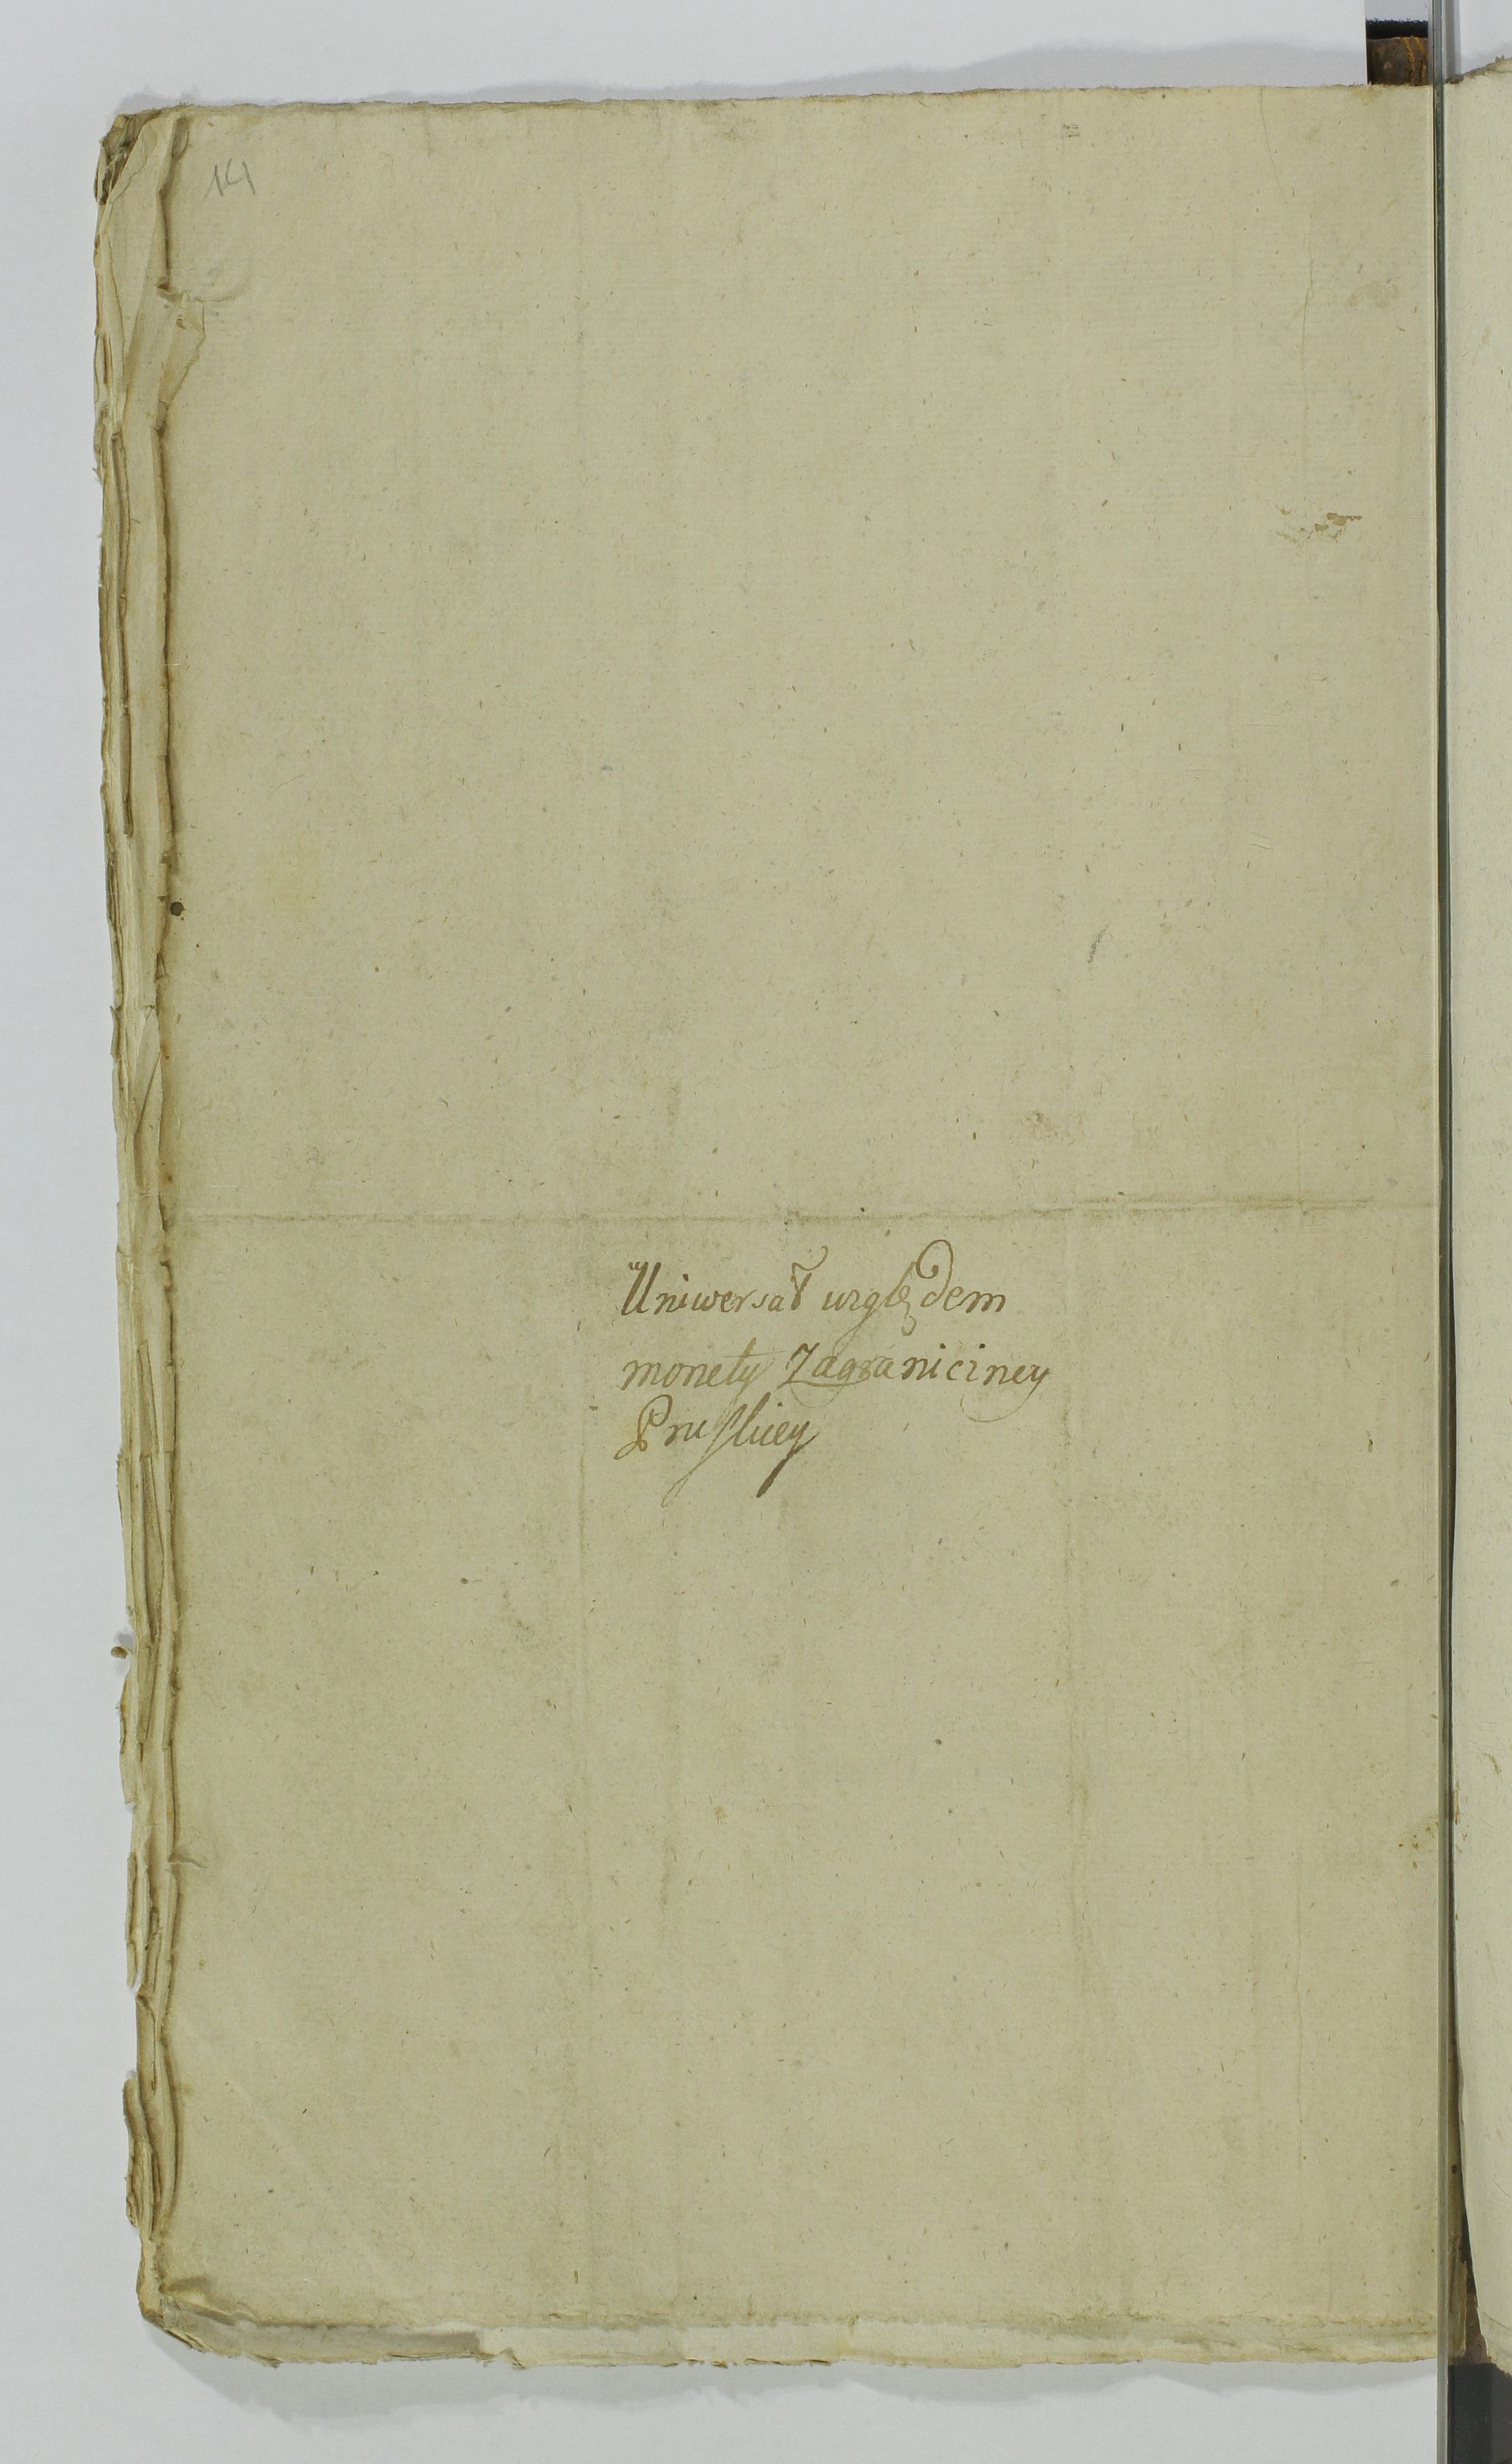 14
Uniwersał względem
monety Zagraniczney
Pruskiey